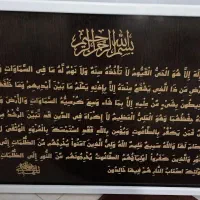 بسم الله الرحمن الرحيم
إله إلا هو الحي القيوم لا تأخذه سنة ولا نوم له ما في السماوات
من ذا الذي يشفع عنده إلا بإذنه يعلم ما بين أيديهم وما
بشيء من علمه إلا بما شاء وسع كرسيه السماوات والأرض
وهو العلي العظيم لا إكراه في الدين قد تبين الرشد من
فمن يكفر بالطاغوت ويؤمن بالله فقد استمسك بالعروة الوثقى
الله ولي الذين آمنوا يخرجهم من الظلمات
والذين كفروا أولياؤهم الطاغوت يخرجونهم من النور إلى الظلمات
أولئك أصحاب النار هم فيها خالدون